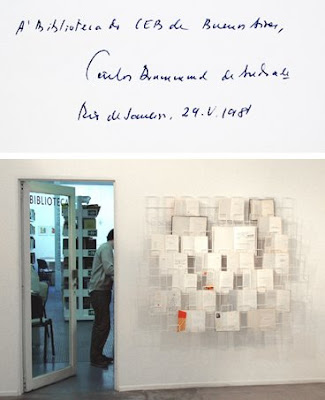 A' Biblioteca do CEB de Buenos Aires,
Carlos Drummond de Andrade
Rio de Janeiro, 29.V.1981
BIBLIOTECA